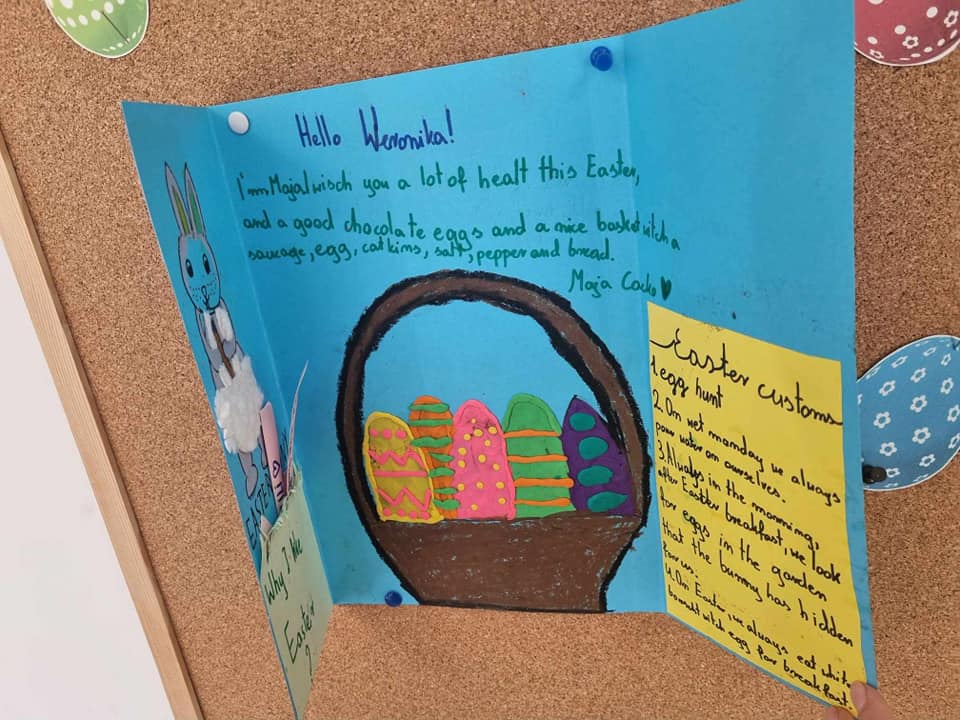 Hello Weronika!
I'm Maja I wisch you a lot of healt this Easter,
and a good chocolate eggs and a nice basket witch a
saucage, egg, catkims, salt, pepper and bread.
Maja Cocko
EASTER
Why I like
Easter
?
Easter customs
1. egg hunt
2. On wet monday we always
pour water on ourselves.
3. Always in the morning,
after Easter breakfast, we look
for eggs in the garden
that the bunny has hidden
for us.
4. On Easter, we always eat white
witch egg for breakfast.